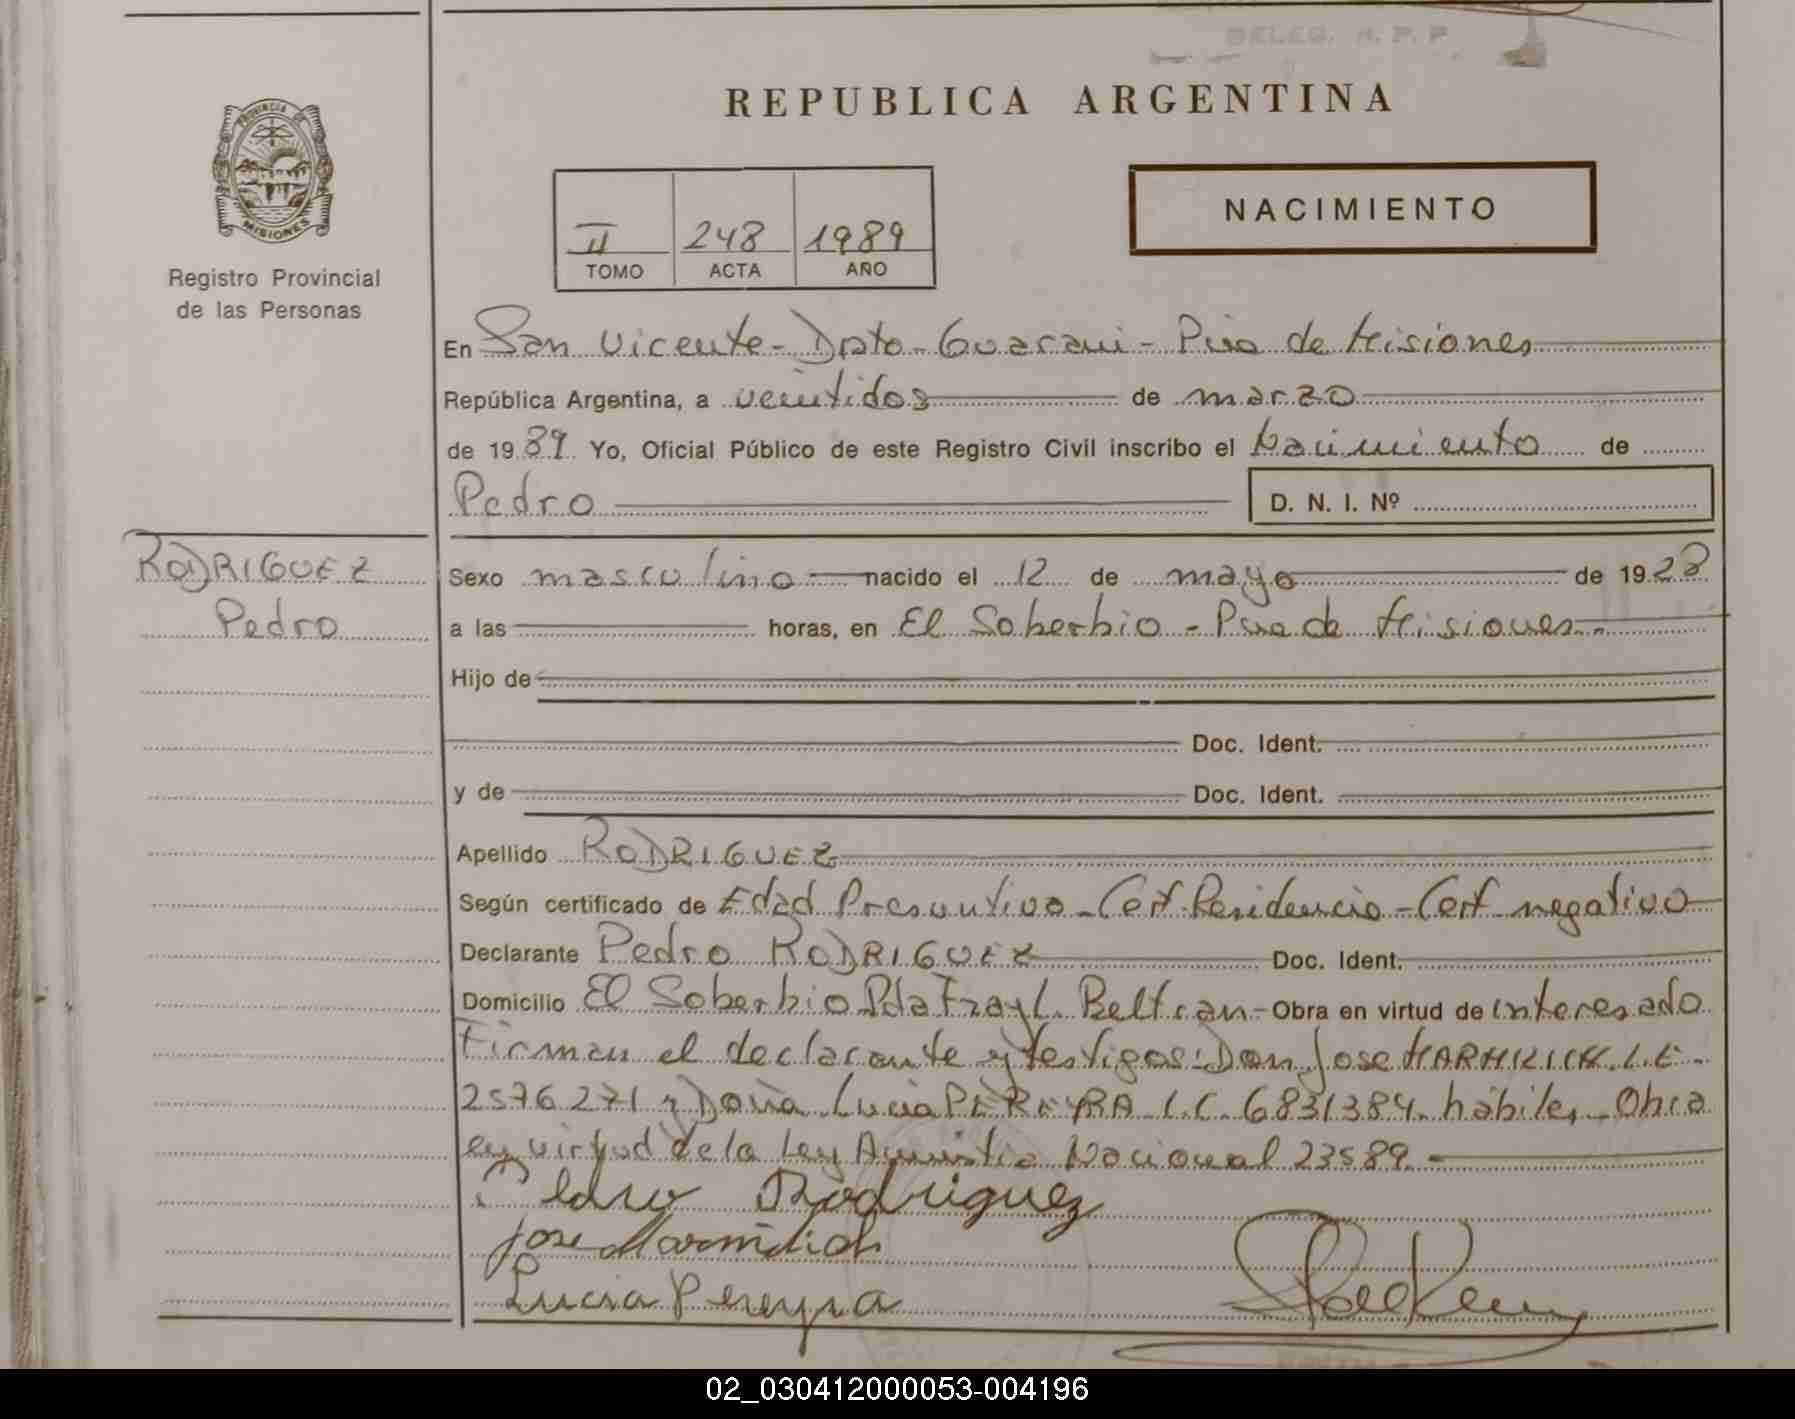 DELEG. R. P. P.
REPUBLICA ARGENTINA
PROVINCIA DE
MISIONES
Registro Provincial
de las Personas
II 248 1989
TOMO ACTA AÑO
NACIMIENTO
En San Vicente - Dpto - Guarani - Pcia de Misiones
República Argentina, a veintidos de marzo
de 1989 Yo, Oficial Público de este Registro Civil inscribo el Nacimiento de
Pedro D. N. I. Nº
RODRIGUEZ
Pedro
Sexo masculino nacido el 12 de mayo de 1928
a las horas, en El Soberbio - Pcia de Misiones -
Hijo de
Doc. Ident.
y de Doc. Ident.
Apellido RODRIGUEZ
Según certificado de Edad Presuntiva - Cert. Residencia - Cert negativo
Declarante Pedro RODRIGUEZ Doc. Ident.
Domicilio El Soberbio Pda Fray L. Beltran - Obra en virtud de interesado
Firman el declarante y testigos: Don Jose L.E.
2576271 y Doña Lucia PEREYRA L.C. 6831384. habiles - Obra
en virtud de la Ley Amnistia Nacional 23589. -
Pedro Rodriguez
Jose
Lucia Pereyra
02_030412000053-004196